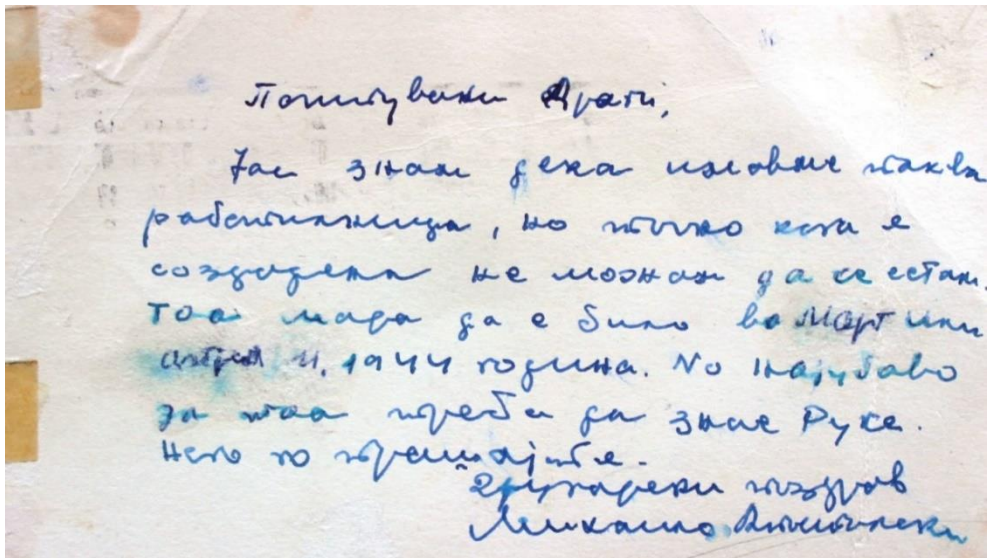 Почитувани Драги,
Јас знам дека имавме таква
работилница, но точно кога е
создадена не можам да се сетам.
Тоа мора да е било во Март или
април, 1944 година. Но најубаво
за тоа треба да знае Руже.
Него го прашајте.
Другарски поздрав
Михаило